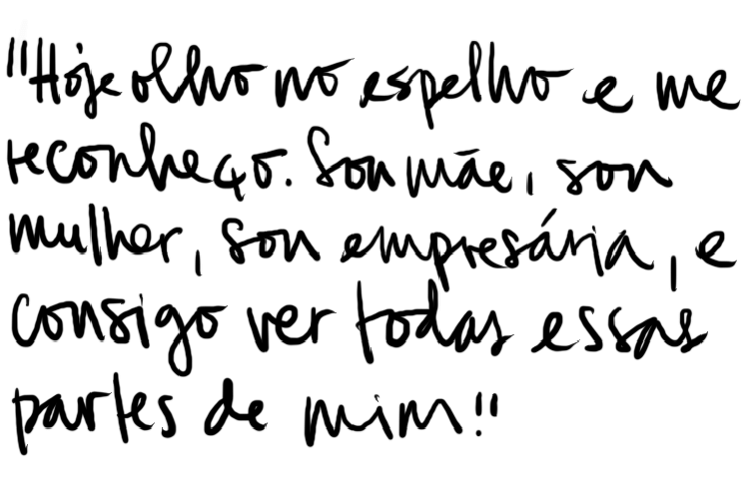 "Hoje olho no espelho e me
reconheço. Sou mãe, sou
mulher, sou empresária, e
consigo ver todas essas
partes de mim!"